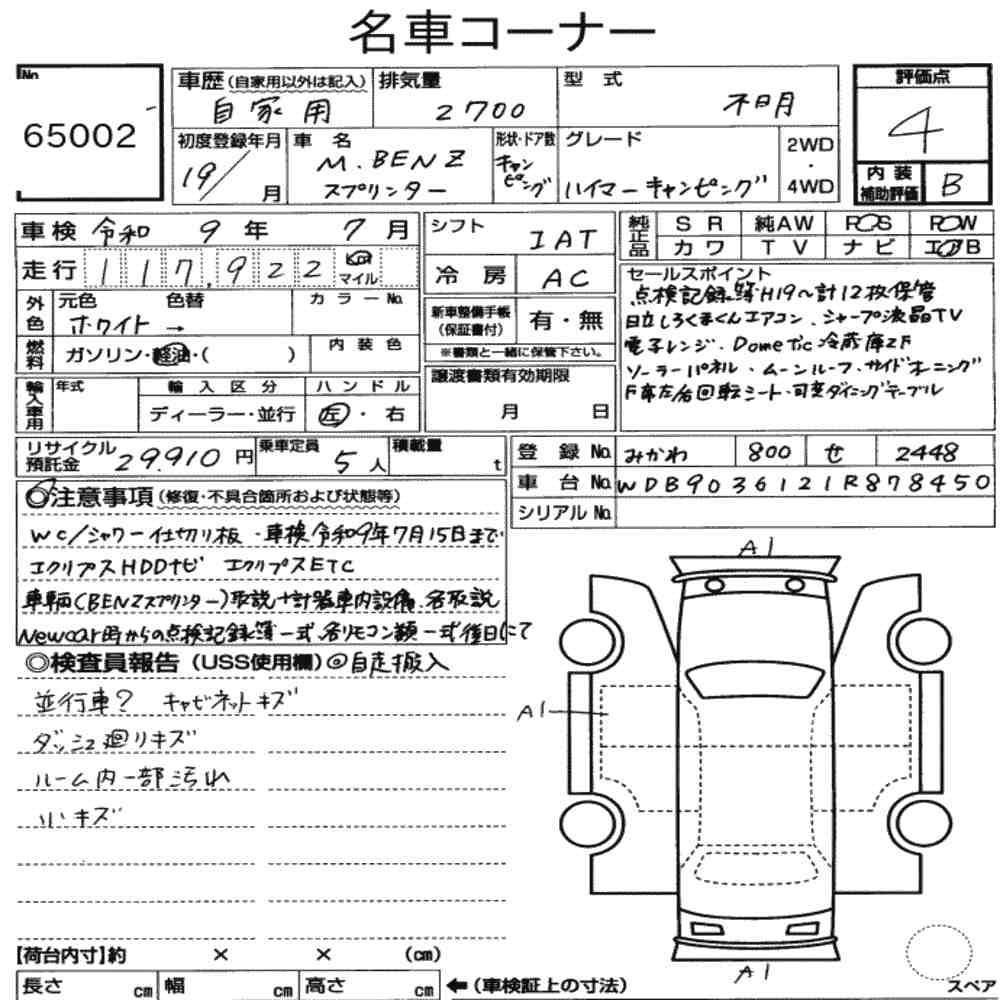 名車コーナー
No.
65002
車歴(自家用以外は記入)
自家用
排気量
2700
型式
不明
評価点
4
初度登録年月
19/
月
車名
M.BENZ
スプリンター
形状・ドア数
キャンピング
グレード
ハイマーキャンピング
2WD
・
4WD
内装
補助評価
B
車検 令和 9年 7月
走行 117,922 km マイル
外色
元色
色替
カラーNo.
ホワイト →
燃料
ガソリン・軽油・( )
内装色
輸入車用
年式
輸入区分
ディーラー・並行
ハンドル
左・右
シフト
IAT
冷房
AC
新車整備手帳
(保証書付)
有・無
※書類と一緒に保管下さい。
譲渡書類有効期限
月 日
純正品
SR
純AW
PS
PW
カワ
TV
ナビ
エアB
セールスポイント
点検記録簿H19~計12枚保管
日立しろくまくんエアコン、シャープ液晶TV
電子レンジ・Dometic冷蔵庫2F
ソーラーパネル・ムーンルーフ・サイドオーニング
F席左右回転シート・可変ダイニングテーブル
リサイクル
預託金
29.910円
乗車定員
5人
積載量
t
登録No.
みかわ
800
せ
2448
車台No.
WDB9036121R878450
シリアルNo.
◎注意事項(修復・不具合箇所および状態等)
WC/シャワー仕切り板・車検令和9年7月15日まで
エクリプスHDDナビ エクリプスETC
車輌(BENZスプリンター)取説+計器車内設備、各取説
Newcar時からの点検記録簿一式、各リモコン類一式後日にて
◎検査員報告(USS使用欄)◎自走搬入
並行車? キャビネットキズ
ダッシュ廻りキズ
ルーム内一部汚れ
小キズ
A1
A1
A1
【荷台内寸】約 × × (cm)
長さ cm
幅 cm
高さ cm
←(車検証上の寸法)
スペア